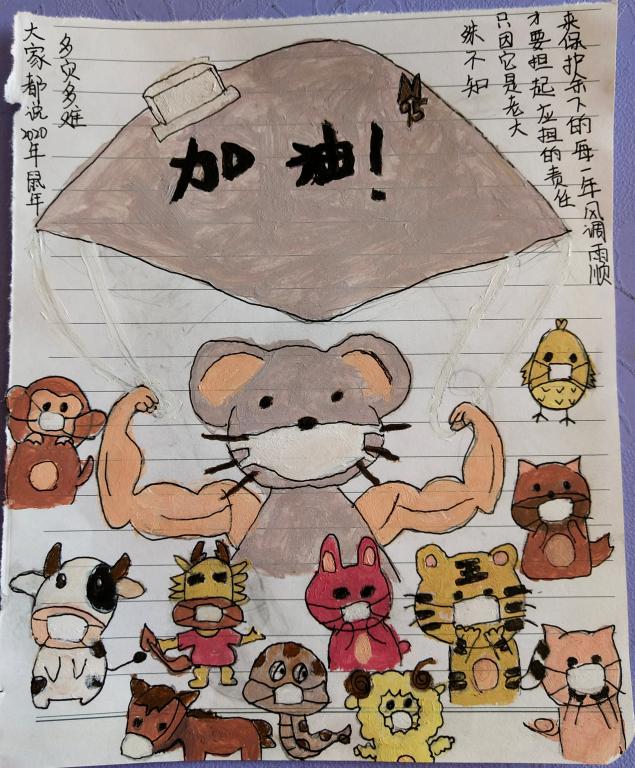 大家都说2020年鼠年
多灾多难
殊不知
只因它是老大
才要担起应担的责任
来保护余下的每一年风调雨顺
N95
加油!
王